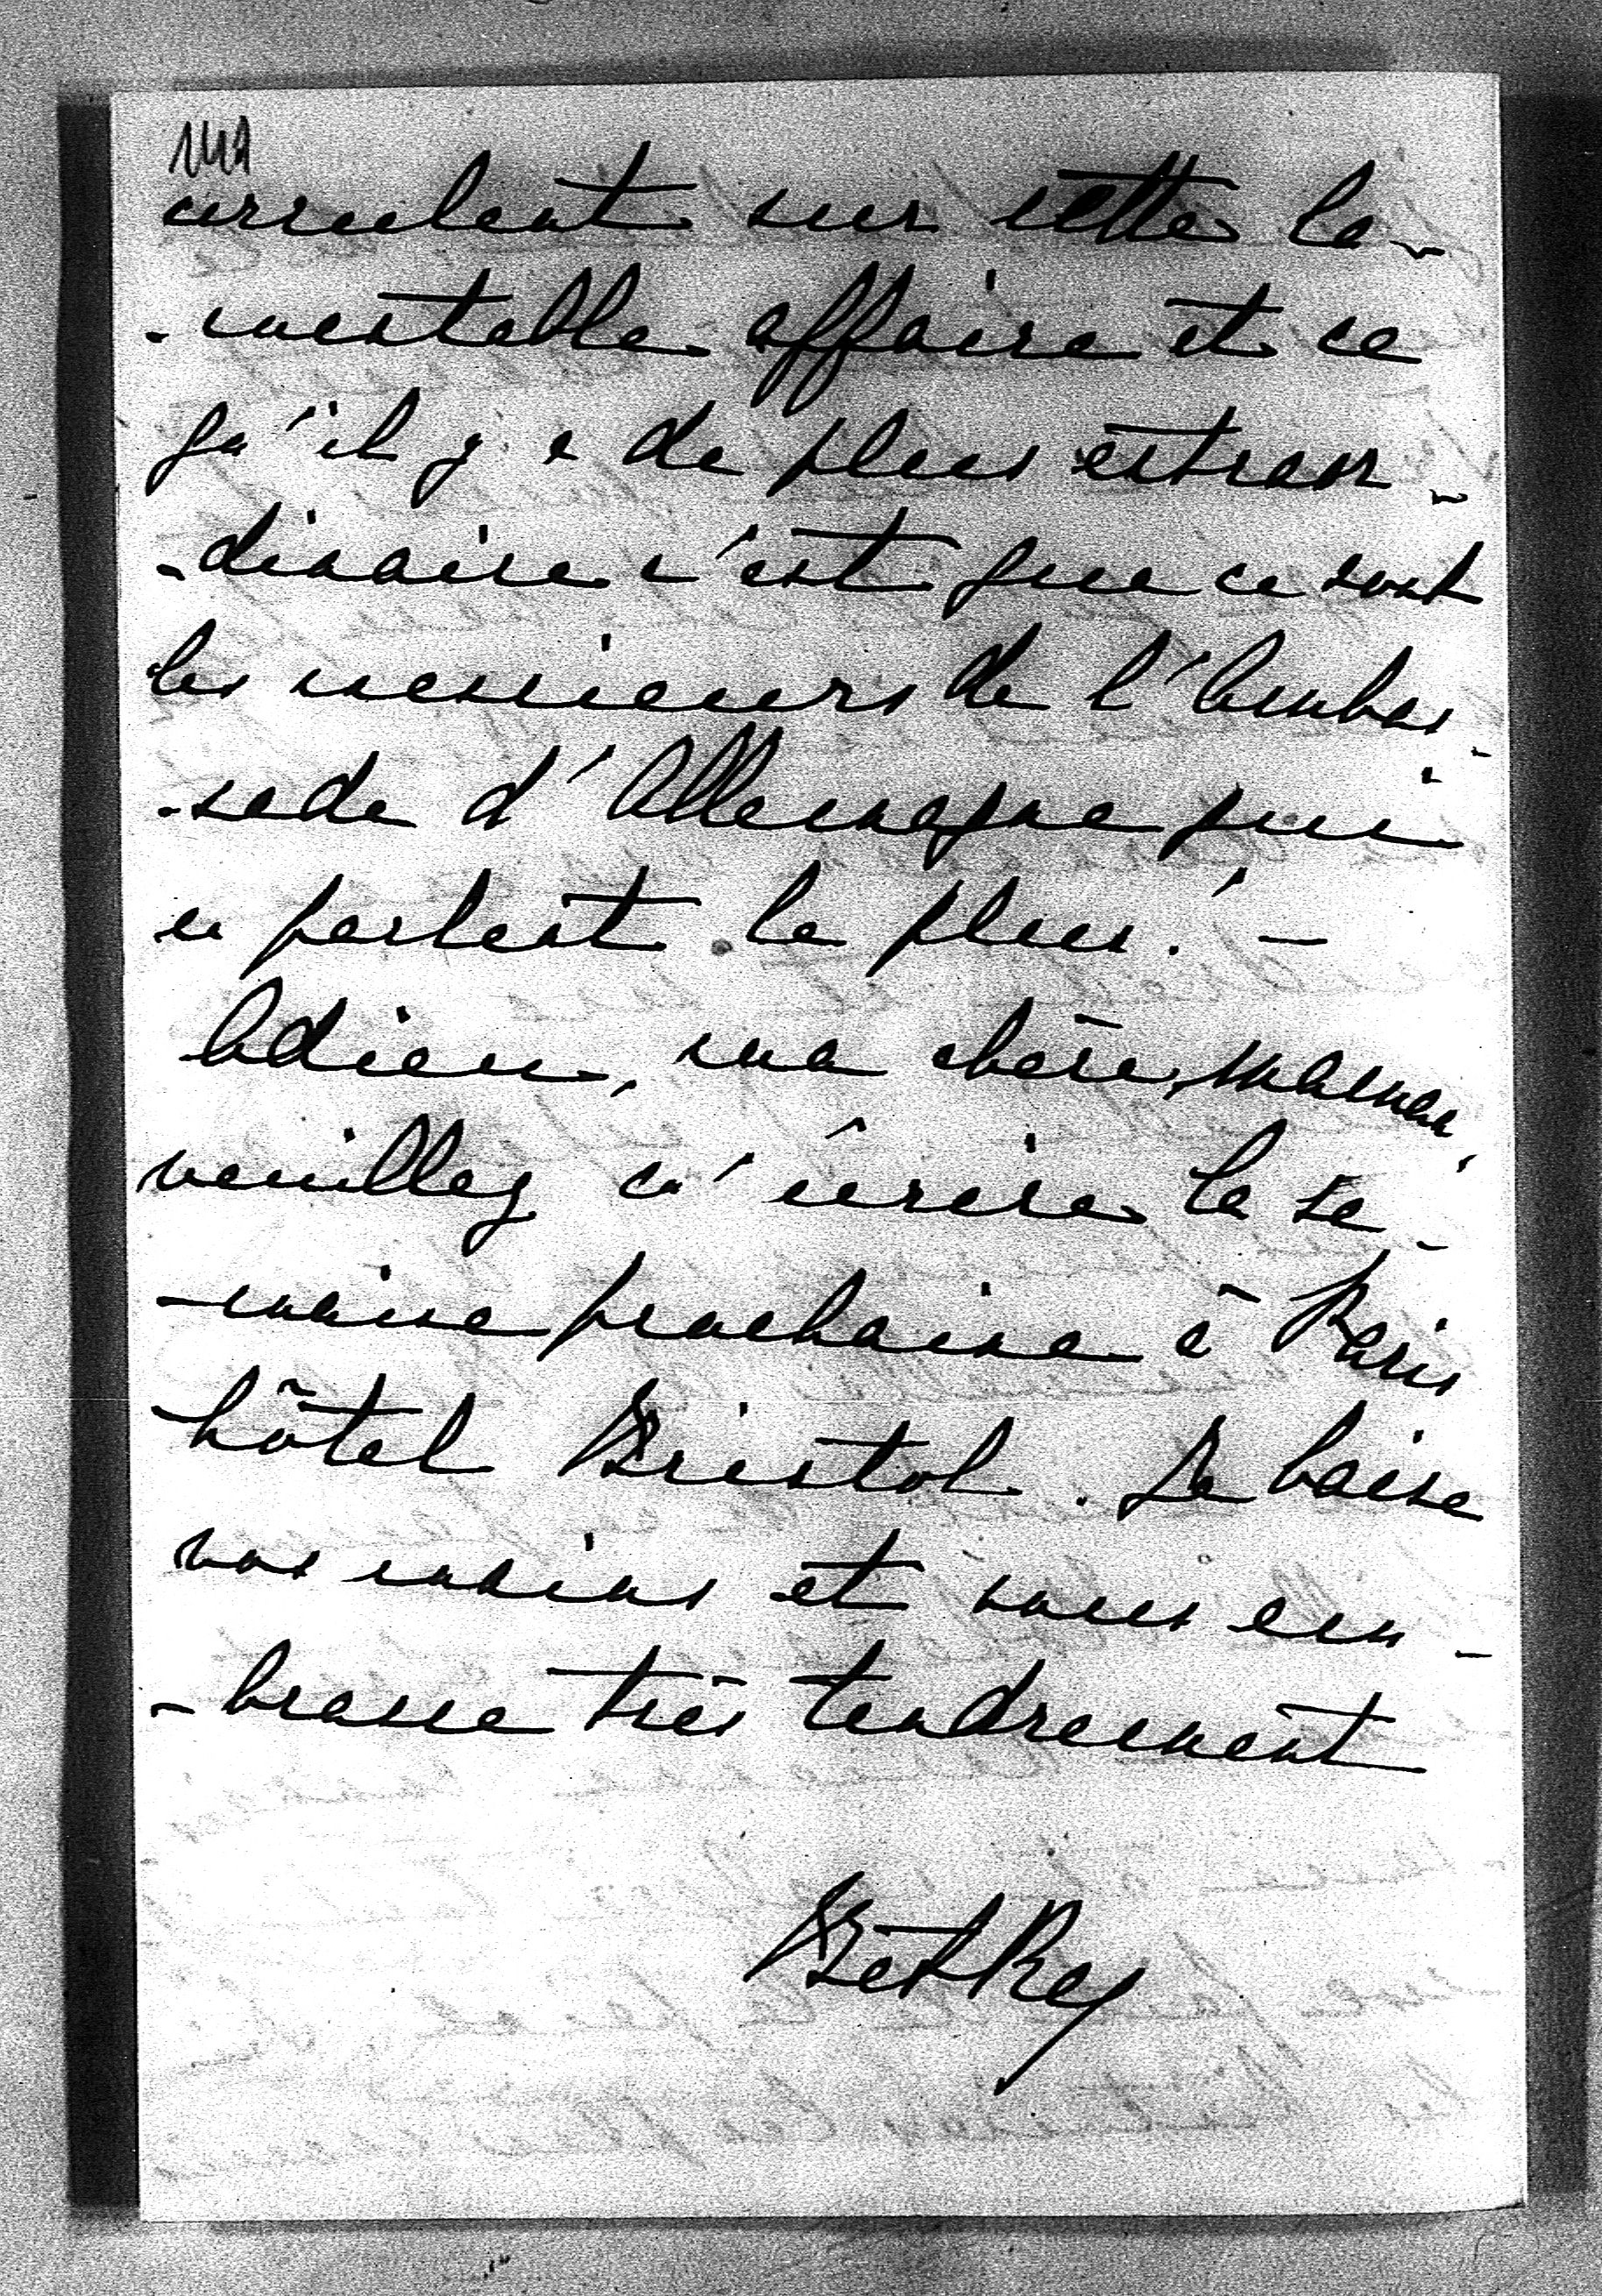 circulent sur cette la-
-mentable affaire et ce
qu'il y a de plus extraor-
-dinaire c'est que ce sont
les messieurs de l'Ambas-
-sade d'Allemagne qui
en parlent le plus! —
Adieu, ma chère maman,
veuillez m'écrire la se-
-maine prochaine à Paris
hôtel Bristol. Je baise
vos mains et vous em-
-brasse très tendrement